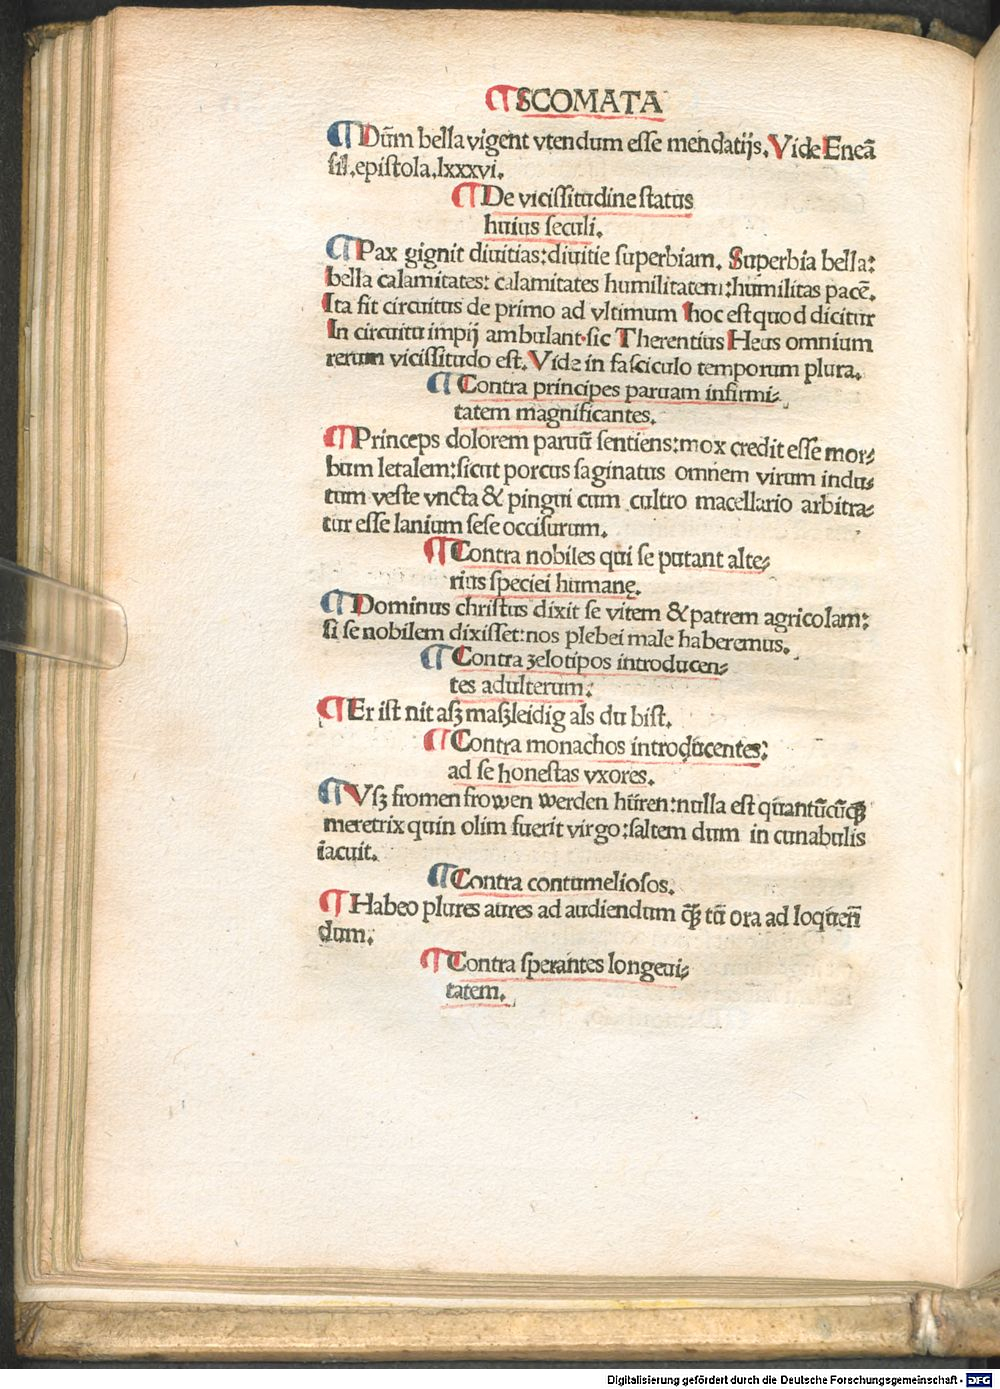 ¶ SCOMATA
¶ Dum̄ bella vigent vtendum esse mendatijs. Vide Eneā
sil. epistola. lxxxvi.
¶ De vicissitudine status
huius seculi.
¶ Pax gignit diuitias: diuitie superbiam. Superbia bella:
bella calamitates: calamitates humilitatem: humilitas pacē.
Ita fit circuitus de primo ad vltimum hoc est quod dicitur
In circuitu impij ambulant. sic Therentius Heus omnium
rerum vicissitudo est. Vide in fasciculo temporum plura.
¶ Contra principes paruam infirmi⸗
tatem magnificantes.
¶ Princeps dolorem paruū sentiens: mox credit esse mor⸗
bum letalem: sicut porcus saginatus omnem virum indu⸗
tum veste vncta & pingui cum cultro macellario arbitra⸗
tur esse lanium sese occisurum.
¶ Contra nobiles qui se putant alte⸗
rius speciei humanę.
¶ Dominus christus dixit se vitem & patrem agricolam:
si se nobilem dixisset: nos plebei male haberemus.
¶ Contra zelotipos introducen⸗
tes adulterum.
¶ Er ist nit alz maszleidig als du bist.
¶ Contra monachos introducentes:
ad se honestas vxores.
¶ Vsz fromen frowen werden hüren: nulla est quantūcūqȝ
meretrix quin olim fuerit virgo: saltem dum in cunabulis
iacuit.
¶ Contra contumeliosos.
¶ Habeo plures aures ad audiendum qȝ tū ora ad loquen̄
dum.
¶ Contra sperantes longeui⸗
tatem.
Digitalisierung gefördert durch die Deutsche Forschungsgemeinschaft - DFG